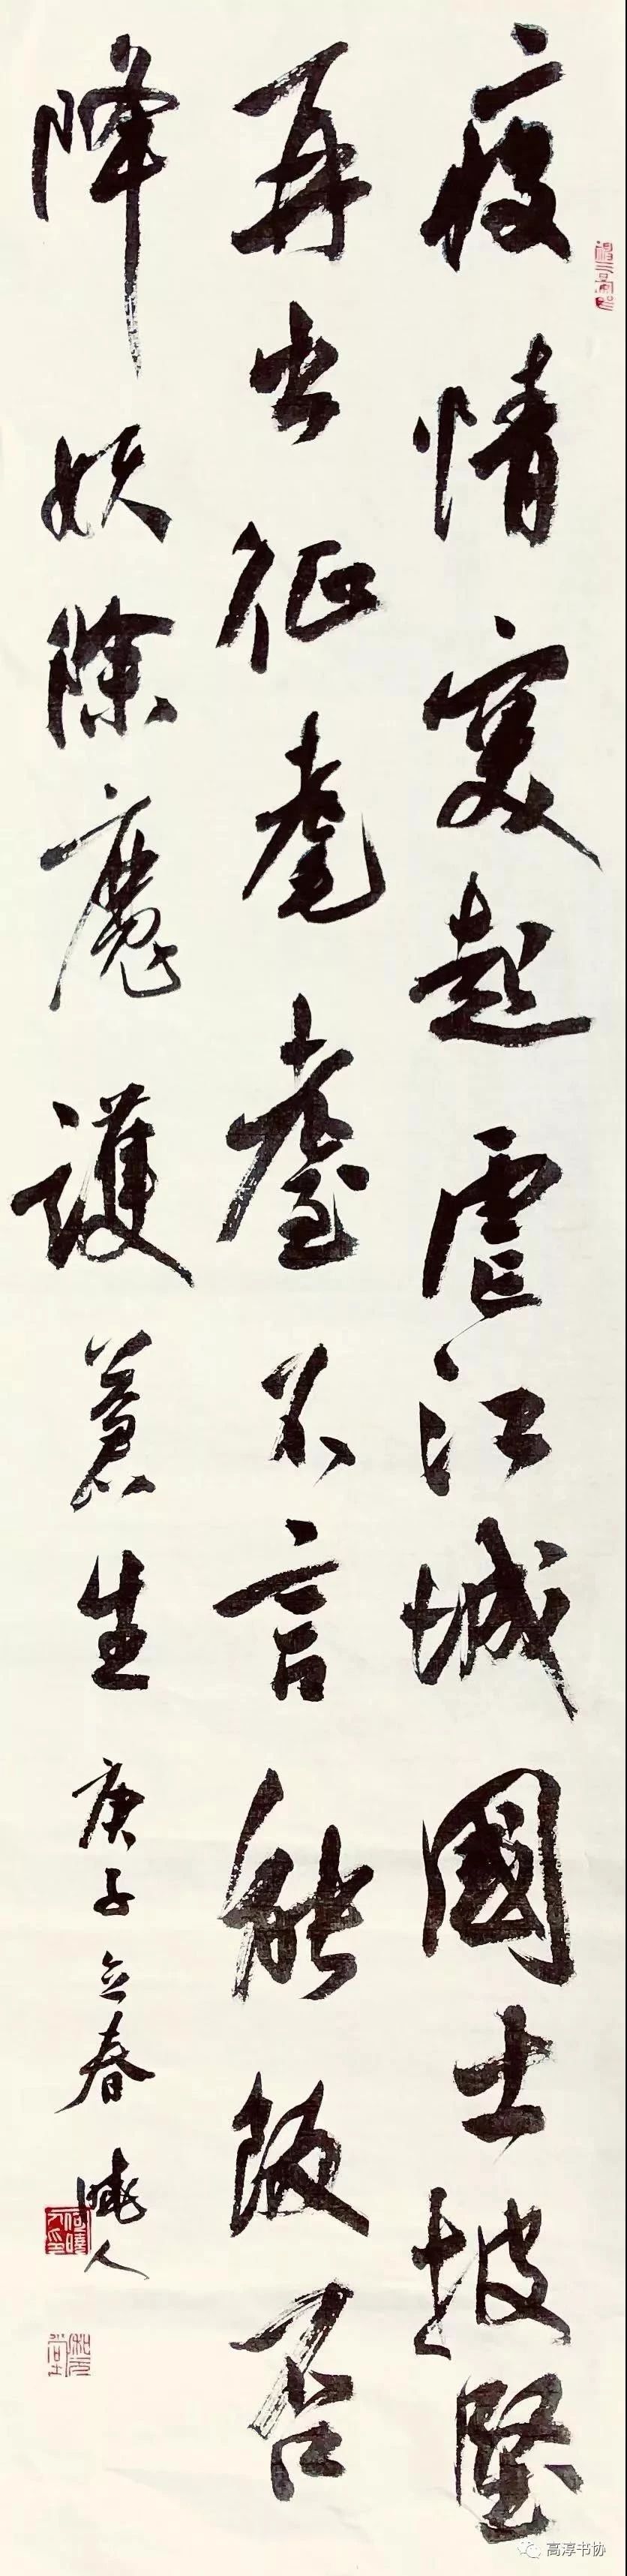 疫情突起虐江城國士披堅
再出征耄耋不言能飯否
降妖除魔護蒼生庚子立春曉人
高淳书协